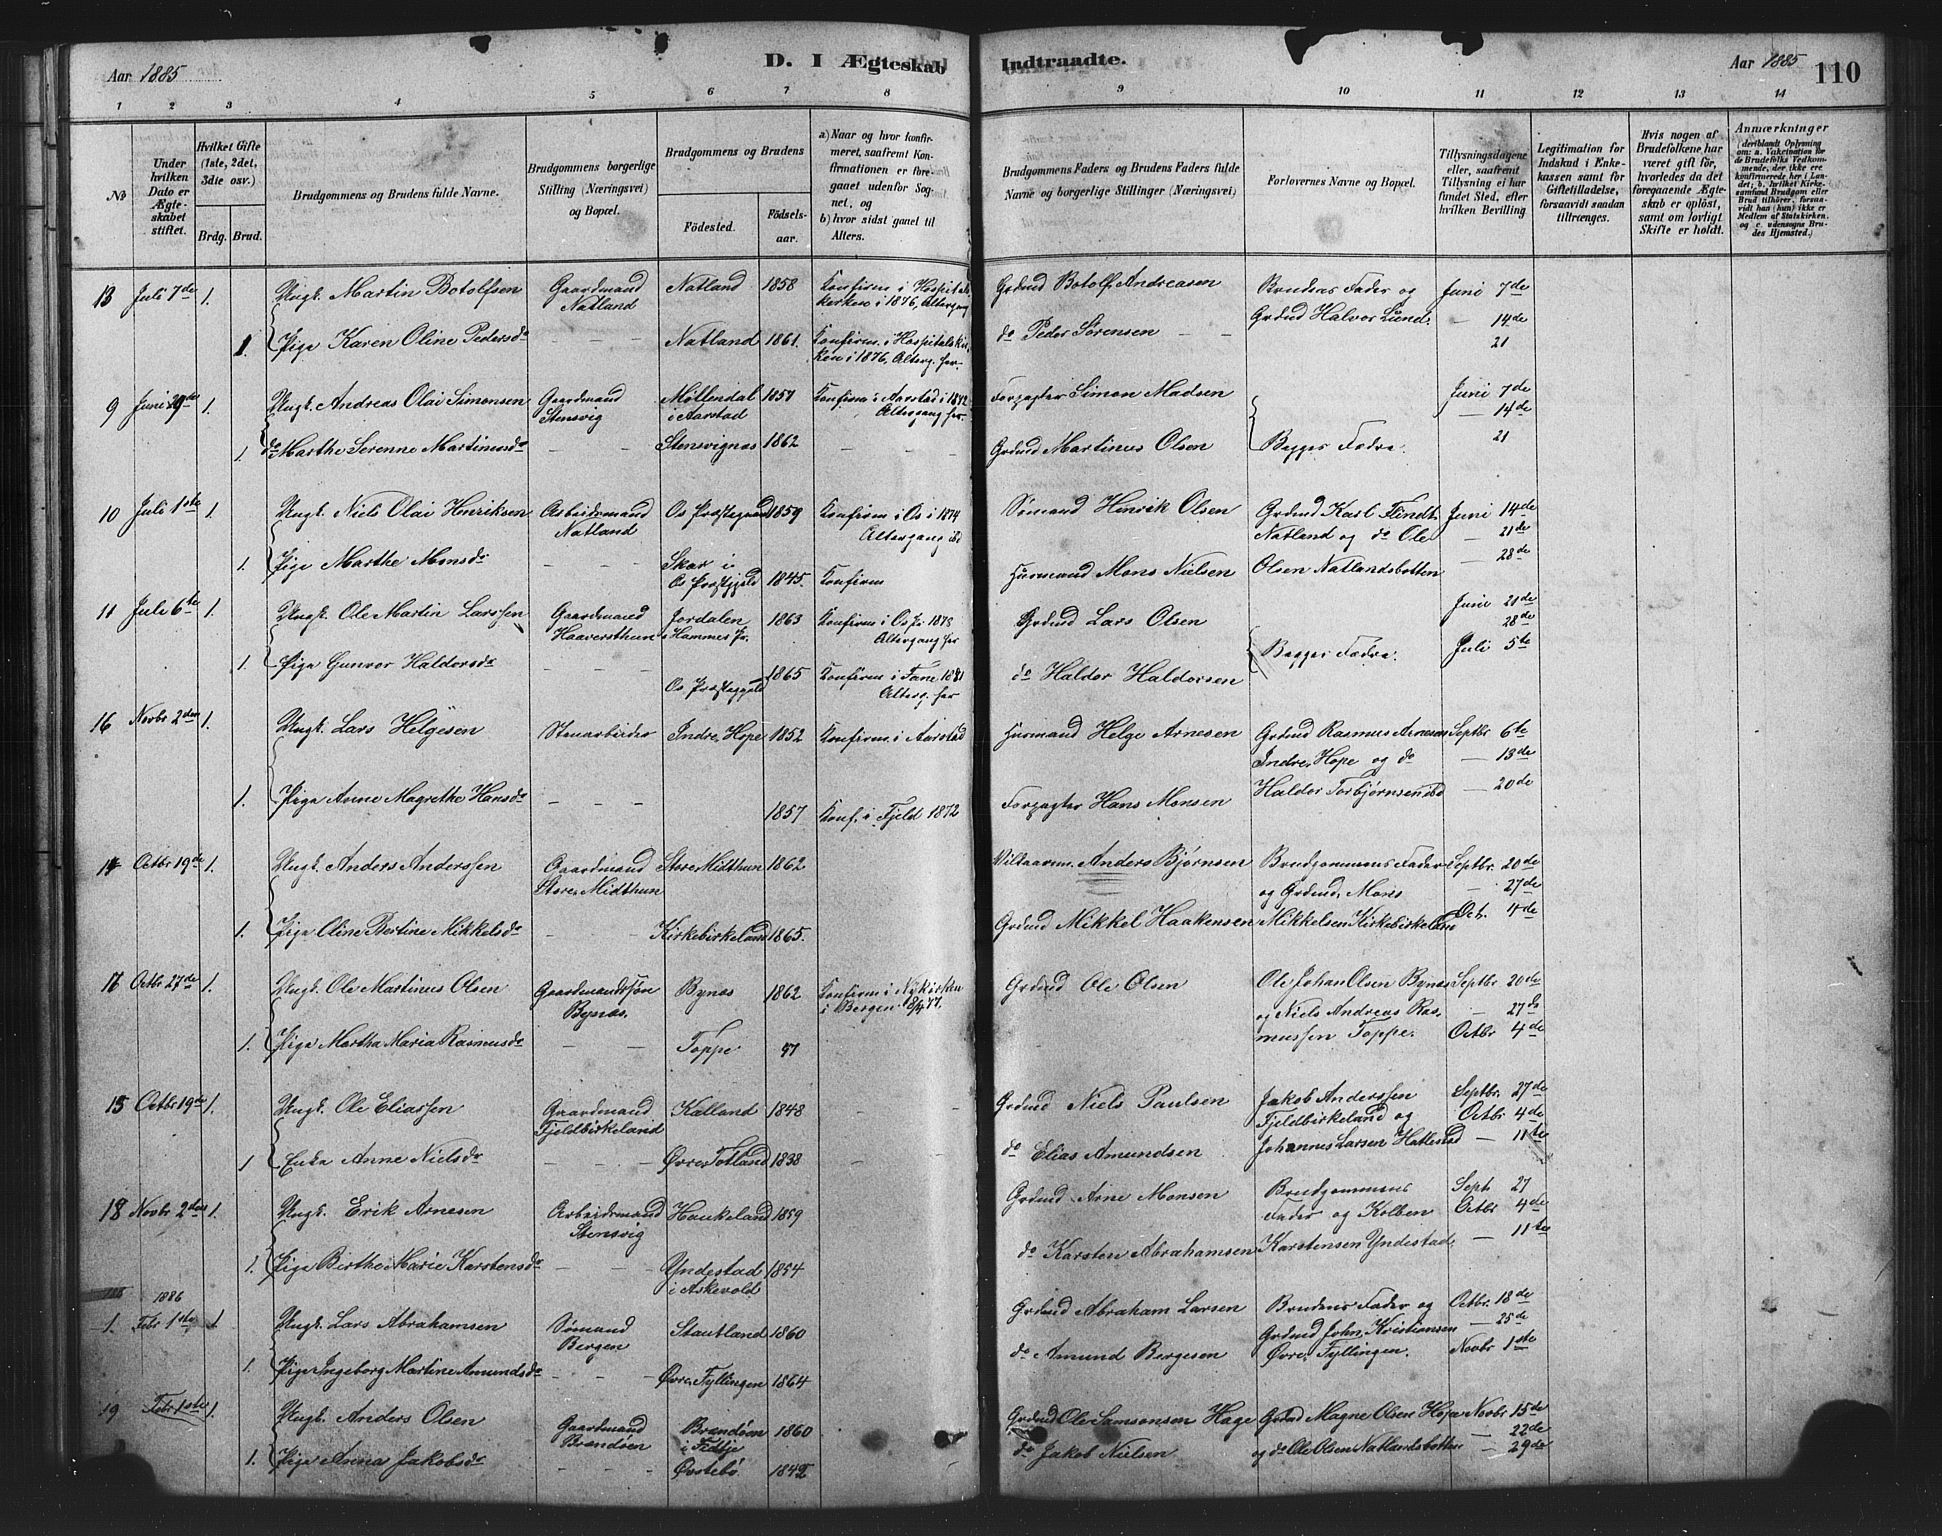 Aar 1885
D. I Ægteskab Indtraadte.
Aar 1885
110
1 2 3 4 5 6 7 8 9 10 11 12 13 14
No
Under hvilken Dato er Ægteskabet stiftet.
Hvilket Gifte (1ste, 2det, 3die osv.)
Brdg. Brud.
Brudgommens og Brudens fulde Navne.
Brudgommens borgerlige Stilling (Næringsvei) og Bopæl.
Brudgommens og Brudens
Fødested.
Fødselsaar.
a) Naar og hvor konfirmeret, saafremt Konfirmationen er foregaaet udenfor Sognet, og
b) hvor sidst gaaet til Alters.
Brudgommens Faders og Brudens Faders fulde Navne og borgerlige Stillinger (Næringsvei)
Forlovernes Navne og Bopæl.
Tillysningsdagene eller, saafremt Tillysning ei har fundet Sted, efter hvilken Bevilling
Legitimation for Indskud i Enkekassen samt for Giftetilladelse, forsaavidt saadan tiltrænges.
Hvis nogen af Brudefolkene har været gift før, hvorledes da det foregaaende Ægteskab er opløst, samt om lovligt Skifte er holdt.
Anmærkninger (deriblandt Oplysning om: a. Vakcination for de Brudefolks Vedkommende, der ikke ere konfirmerede her i Landet; b. hvilket Kirkesamfund Brudgom eller Brud tilhører, forsaavidt han (hun) ikke er Medlem af Statskirken, og c. udensogns Brudes Hjemsted.)
13 Juli 7de 1. Ungk. Martin Botolfsen Gaardmand Natland Natland 1858 Konfirm i Hospitalskirken i 1876, Altergang Grdmd Botolf Andreasen Brudens Fader og Juni 7de
1. Pige Karen Oline Pedersdr — — Natland 1861. Konfirm. i Hospitalskirken i 1876, Alterg. her do Peder Sørensen Grdmd Halvor Lund. — 14de
21
9 Juni 29de 1. Ungk. Andreas Olai Simonsen Gaardmand Stensvig Møllendal i Aarstad 1857 Konfirm i Aarstad i 1872 Altergang her Forpagter Simon Madsen Juni 7de
— 14de
1. do Marthe Serenne Martinusdr — — Stensvignæs 1862 — — — Grdmd Martinus Olsen Begges Fædre. 21
10 Juli 1ste 1. Ungk. Niels Olai Henriksen Arbeidsmand Natland Os Præstegjæld 1859 Konfirm i Os i 1874 Altergang ibd Sømand Henrik Olsen Grdmd Karl Flindt Juni 14de
Natland og do Ole — 21de
1. Pige Marthe Monsdr — — Skar i Os Præstegjæld 1845. Konfirm Husmand Mons Nielsen Olsen Natlandsbotten — 28de
11 Juli 6te 1. Ungk. Ole Martin Larssen Gaardmand Haaversthun Jordalen i Hammer Pr. 1863 Konfirm i Os Pr. 1878 Altergang her Grdmd Lars Olsen Juni 21de
28de
1. Pige Gunvor Haldorsdr — — Os Præstegjæld 1865 Konfirm i Fane 1881 Alterg. her do Haldor Haldorsen Begges Fædre. Juli 5te
16 Novbr 2den 1. Ungk. Lars Helgesen Stenarbeider Indre Hope 1852 Konfirm. i Aarstad Husmand Helge Arnesen Grdmd Rasmus Arnesen Septbr 6te
Indre Hope og do — 13de
1. Pige Anne Magrethe Hansdr — — — 1857 Konf. i Fjeld 1872 Forpagter Hans Monsen Haldor Torbjørnsen ibd — 20de
14 Octbr 19de 1. Ungk. Anders Anderssen Gaardmand Store Midthun Store Midthun 1862 Anders Bjørnsen Brudgommens Fader Septbr. 20de
og Grdmd. Mons — 27de
1. Pige Oline Bertine Mikkelsdr — — Kirkebirkeland 1865. Grdmd Mikkel Haakensen Mikkelsen Kirkebirkeland Oct. 4de
17 Octbr 27de 1. Ungk. Ole Martinus Olsen Gaardmandssøn Bynæs. Bynæs 1862 Konfirm i Nykirken i Bergen Grdmd Ole Olsen Ole Johan Olsen Bynæs Septbr 20de
og Niels Andreas Ras- — 27de
1. Pige Martha Maria Rasmusdr — — Toppe mussen Toppe. Octbr 4de
15 Octbr 19de 1. Ungk. Ole Eliassen Gaardmand Fjeldbirkeland Kalland 1848 Grdmd Niels Paulsen Jakob Anderssen Septbr. 27de
Fjeldbirkeland og Octbr 4de
1 Enke Anne Nielsdr — — — Øvre Totland 1838 do Elias Amundsen Johannes Larsen Hatlestad — 11te
18 Novbr 2den 1. Ungk. Erik Arnesen Arbeidsmand Stensvig Haukeland 1859 Grdmd Arne Monsen Brudgommens Septb 27
Fader og Kolben Octbr 4de
1. Pige Birthe Marie Karstensdr — — — Yndestad i Askevold 1854 do Karsten Abrahamsen Karstensen Yndestad. — 11te
1886
1. Febr 1ste 1. Ungk. Lars Abrahamsen Sømand Bergen Stautland 1860 Grdmd Abraham Larsen Brudens Fader og Octbr. 18de
Grdmd John Kristiansen — 25de
1. Pige Ingeborg Martine Amundsdr — — — Øvre Fyllingen 1864 do Amund Bergesen Øvre Fyllingen. Novbr 1ste
19 Febr 1ste 1. Ungk. Anders Olsen Gaardmand Brandøen Brandøen i Fedje 1860 Grdmd Ole Samsonsen Hage Grdmd Magne Olsen Hope Novbr 15de
— 22de
1. Pige Anna Jakobsdr — — — Øvstebø 1842 do Jakob Nielsen og do Ole Olsen Natlandsbotten — 29de